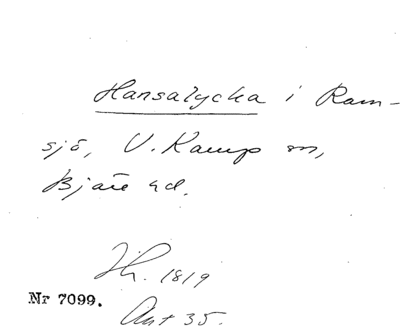 Hansalycka i Ram-
sjö, V. Karup sn,
Bjäre hd.
Jh. 1819
Nr 7099.
Akt 35.